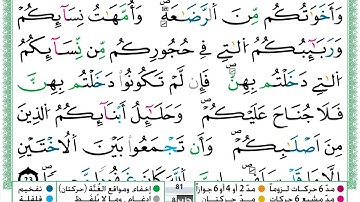 وَأَخَوَٰتُكُم مِّنَ ٱلرَّضَٰعَةِ وَأُمَّهَٰتُ نِسَآئِكُمْ
وَرَبَٰٓئِبُكُمُ ٱلَّٰتِے فِے حُجُورِكُم مِّن نِّسَآئِكُمُ
ٱلَّٰتِے دَخَلْتُم بِهِنَّ فَإِن لَّمْ تَكُونُوا۟ دَخَلْتُم بِهِنَّ
فَلَا جُنَاحَ عَلَيْكُمْ وَحَلَٰٓئِلُ أَبْنَآئِكُمُ ٱلَّذِينَ
مِنْ أَصْلَٰبِكُمْ وَأَن تَجْمَعُوا۟ بَيْنَ ٱلْأُخْتَيْنِ
23
مدّ 6 حركات لزوماً مدّ 2 أو 4 أو 6 جوازاً 81 إخفاء، ومواقع الغُنَّة (حركتان) تفخيم
مدّ مشبع 6 حركات مدّ حركتان إدغام، وما لا يُلفَظ قلقلة